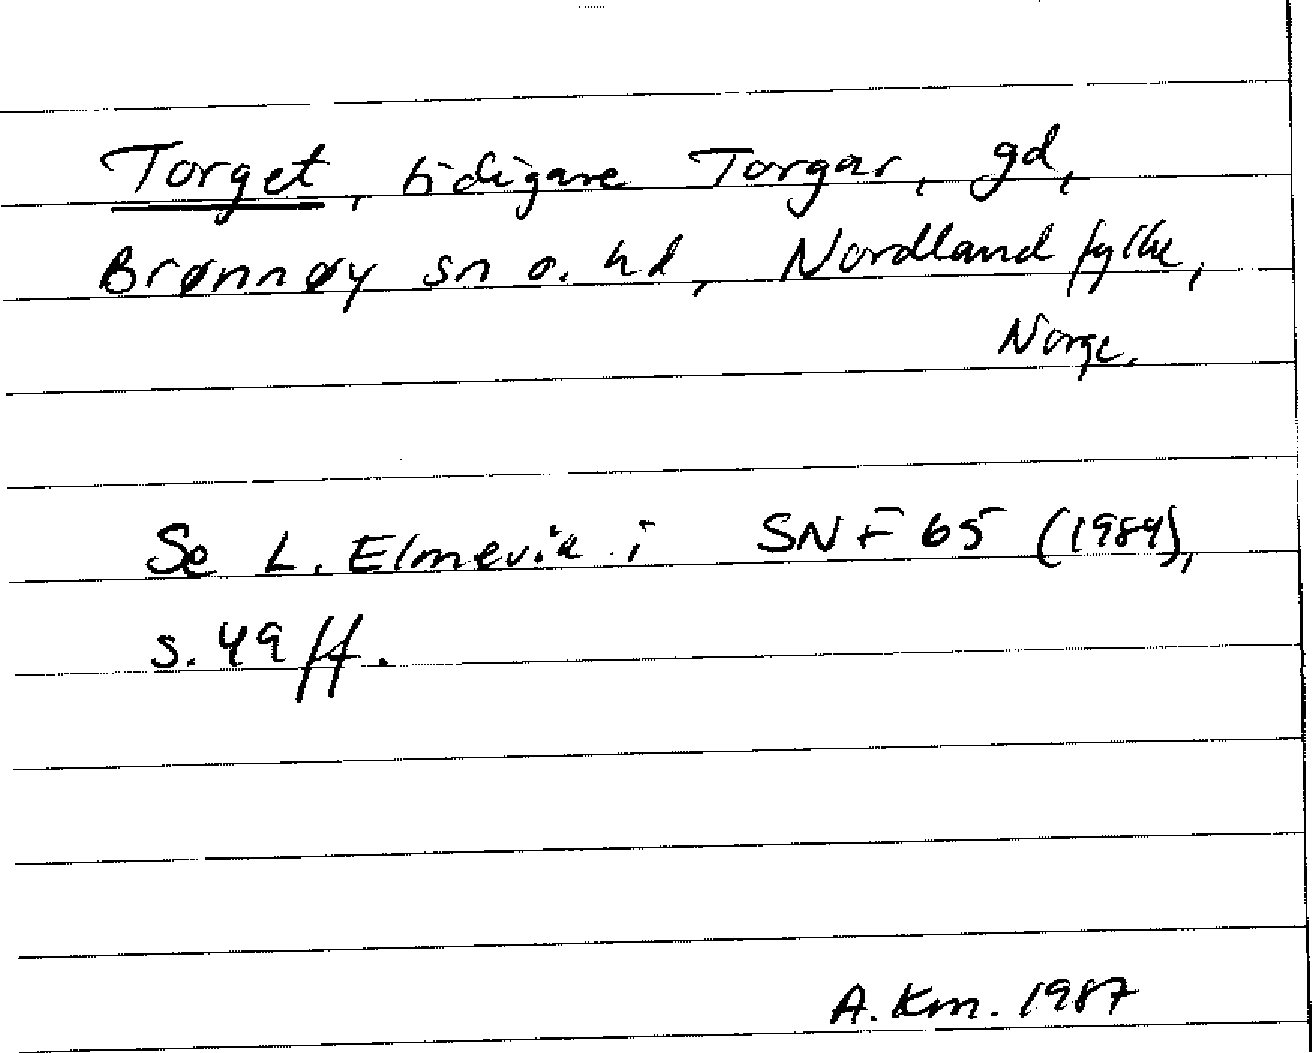 Torget, tidigare Torgar, gd,
Brønnøy sn o. hd, Nordland fylke,
Norge.
Se L. Elmevik i SNF 65 (1984),
s. 49 ff.
A. Km. 1987